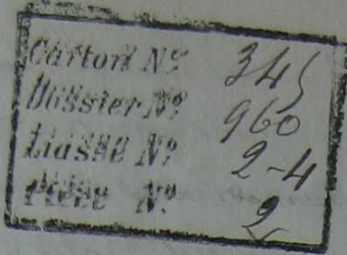 Carton Nº 345
Dossier Nº 960
Liasse Nº 2-4
Pièce Nº 2